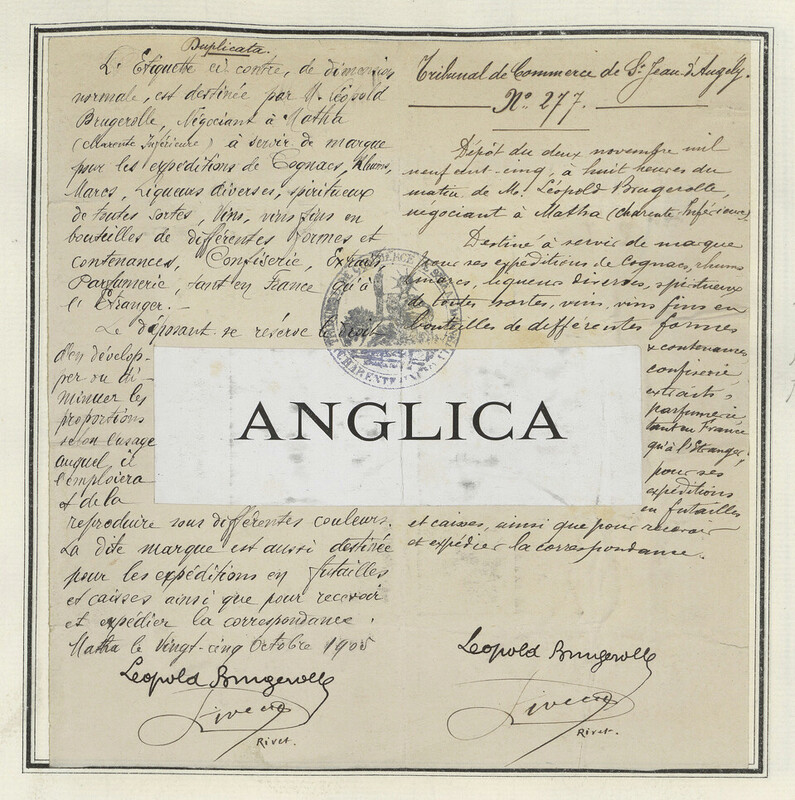 Duplicata.
L'Etiquette ci contre, de dimension
normale, est destinée par M. Léopold
Brugerolle, Négociant à Matha
(Charente Inférieure) à servir de marque
pour les expéditions de Cognacs, Rhums,
Marcs, Liqueurs diverses, spiritueux
de toutes sortes, Vins, vins fins en
bouteilles de différentes formes et
contenances, Confiserie, Extraits,
Parfumerie, tant en France qu'à
l'Etranger.
Le déposant se réserve le droit
d'en dévelop-
per ou di-
minuer les
proportions
selon l'usage
auquel il
l'emploiera
et de la
reproduire sous différentes couleurs.
La dite marque est aussi destinée
pour les expéditions en futailles
et caisses ainsi que pour recevoir
et expédier la correspondance.
Matha le Vingt-cinq Octobre 1905
Leopold Brugerolle
Rivet.
ANGLICA
Tribunal de Commerce de St Jean d'Angely.
No 277.
Dépôt du deux novembre mil
neuf cent-cinq, à huit heures du
matin de Mr Léopold Brugerolle,
négociant à Matha (Charente Inférieure)
Destiné à servir de marque
pour ses expéditions de Cognacs, rhums
marcs, liqueurs diverses, spiritueux
de toutes sortes, vins, vins fins en
bouteilles de différentes formes
& contenances
confiserie,
extraits,
parfumerie,
tant en France
qu'à l'Etranger,
pour ses
expéditions
en futailles
et caisses, ainsi que pour recevoir
et expédier la correspondance.
Leopold Brugerolle
Rivet.